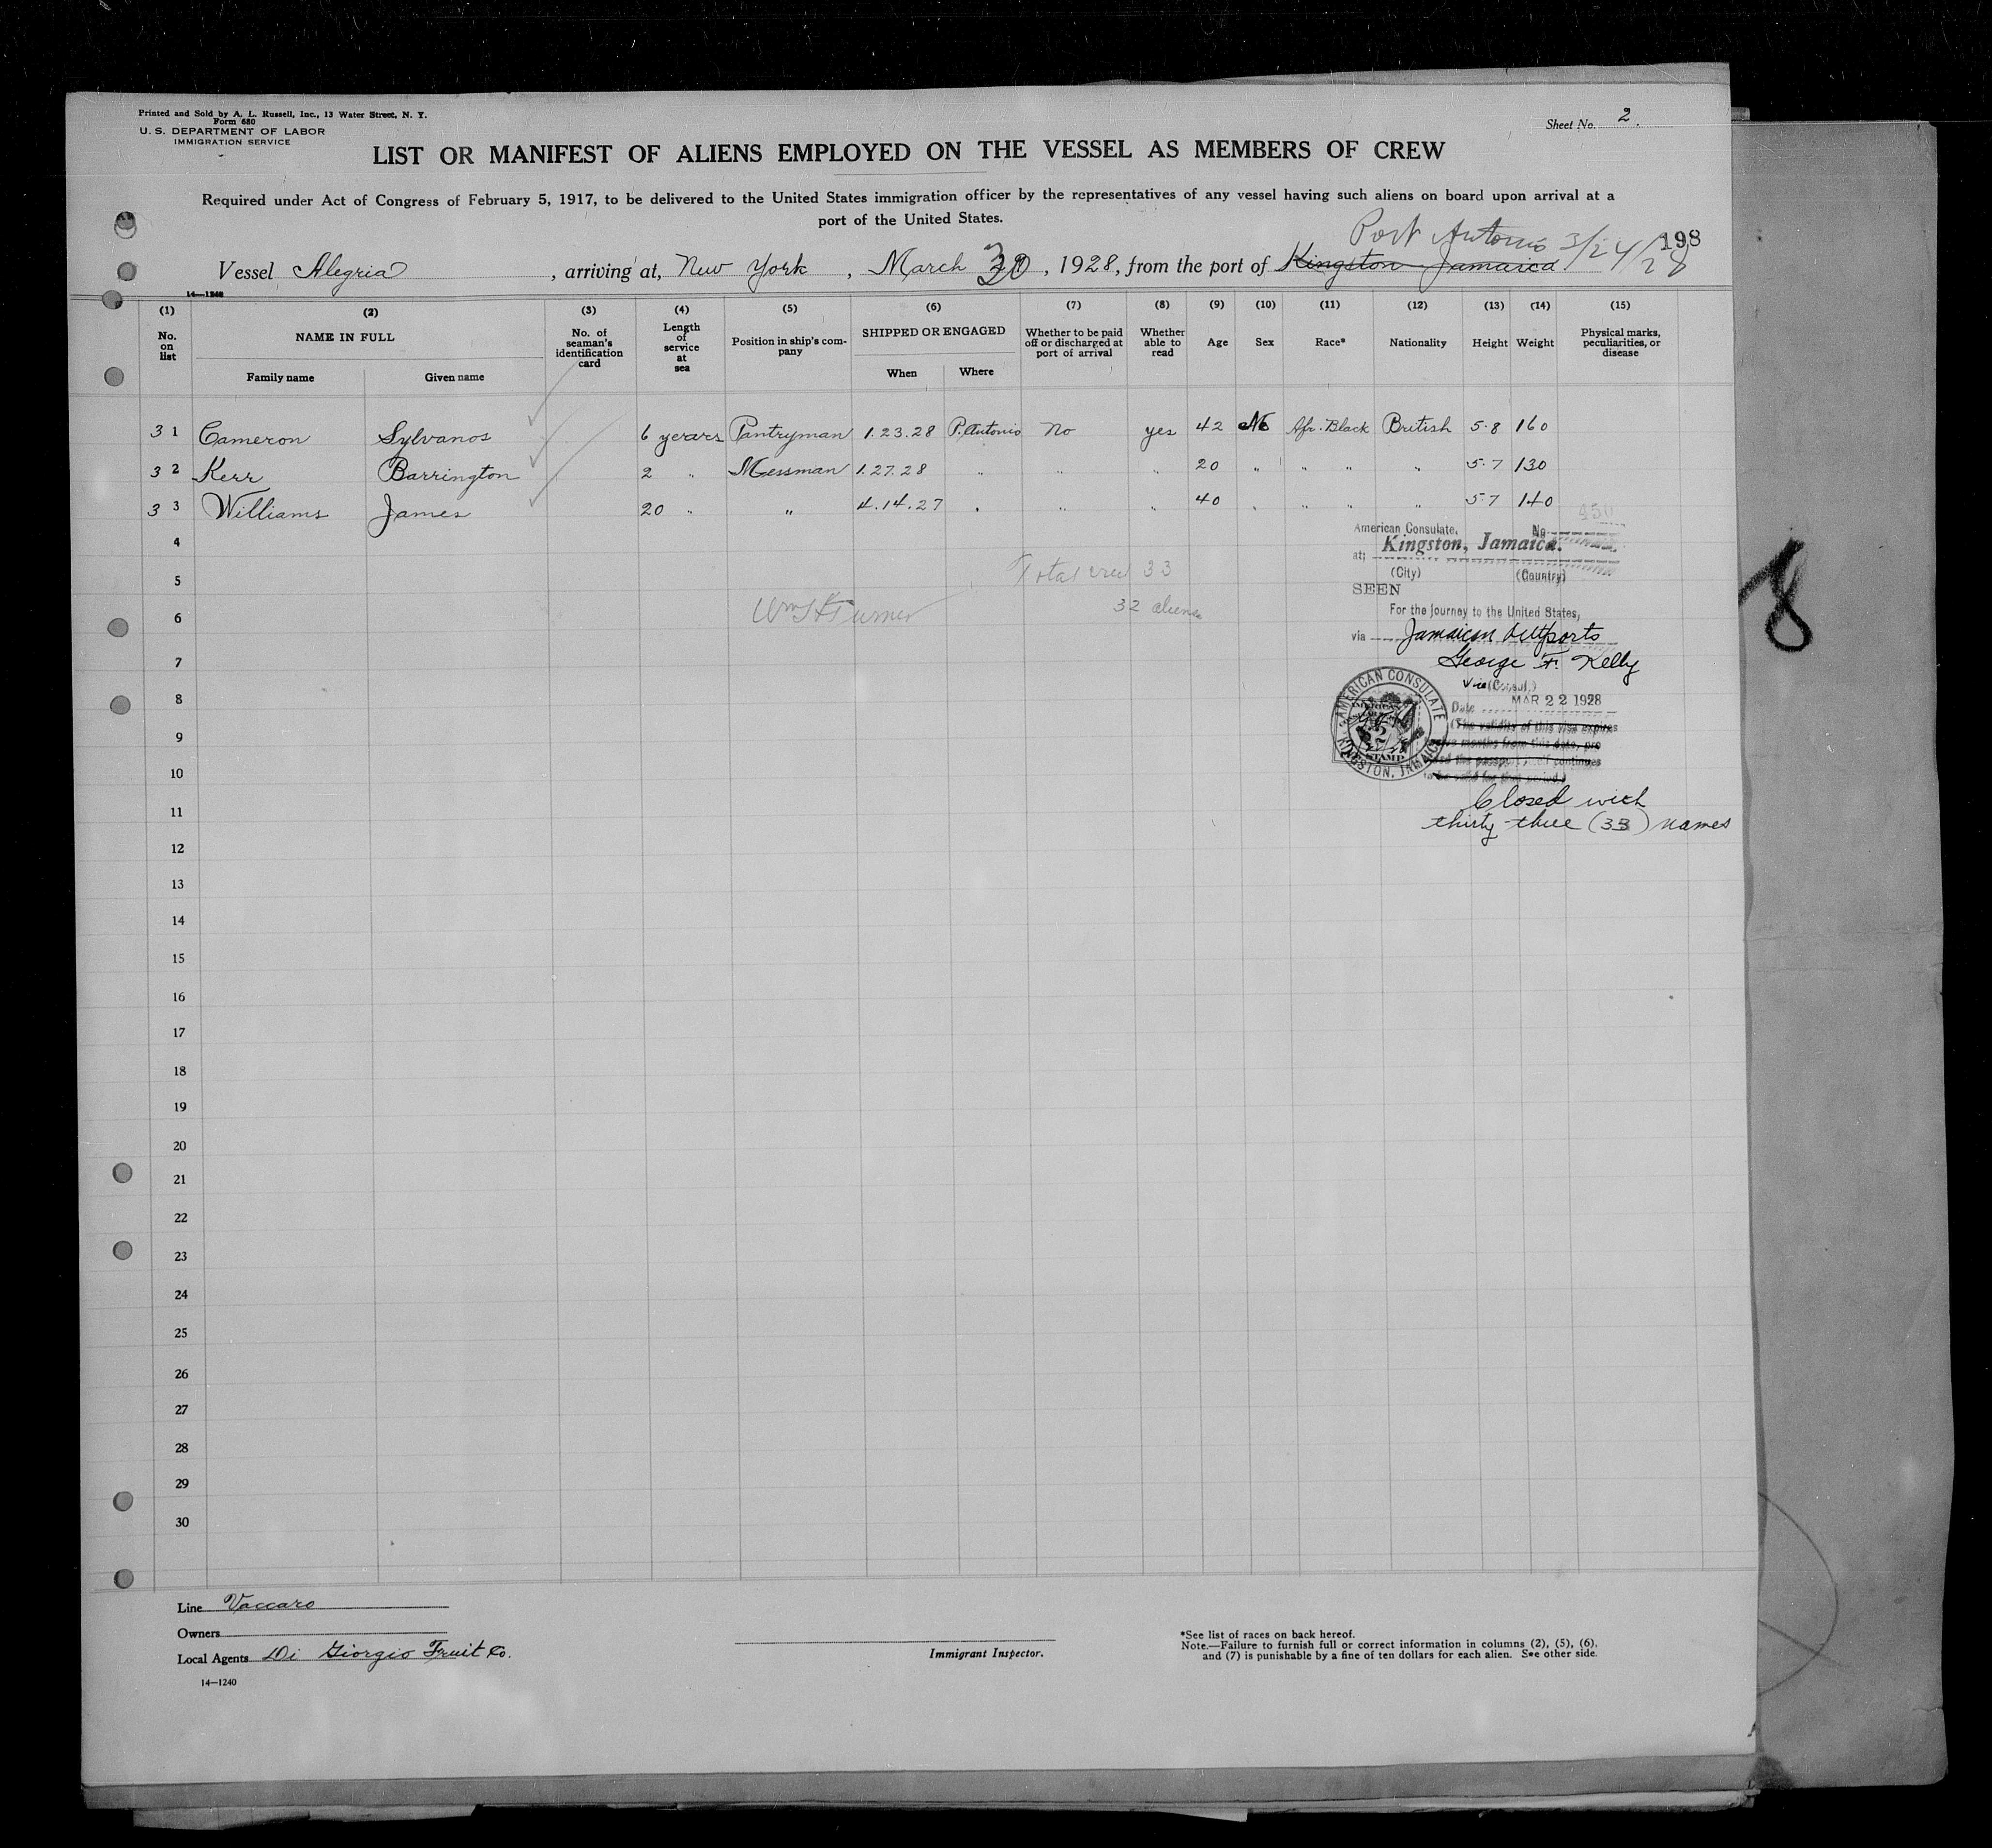 Printed and Sold by A. L. Russell, Inc., 13 Water Street, N. Y.
Form 680
U. S. DEPARTMENT OF LABOR
IMMIGRATION SERVICE
Sheet No. 2.
LIST OR MANIFEST OF ALIENS EMPLOYED ON THE VESSEL AS MEMBERS OF CREW
Required under Act of Congress of February 5, 1917, to be delivered to the United States immigration officer by the representatives of any vessel having such aliens on board upon arrival at a
port of the United States.
Port Antonio 3/24/28
198
Vessel Alegria, arriving at, New York, March 30, 1928, from the port of Kingston Jamaica
14—1240
(1) (2) (3) (4) (5) (6) (7) (8) (9) (10) (11) (12) (13) (14) (15)
No. on list
NAME IN FULL
Family name Given name
No. of seaman's identification card
Length of service at sea
Position in ship's company
SHIPPED OR ENGAGED
When Where
Whether to be paid off or discharged at port of arrival
Whether able to read
Age Sex Race* Nationality Height Weight
Physical marks, peculiarities, or disease
31 Cameron Sylvanos 6 yerars Pantryman 1.23.28 P. Antonio No yes 42 M Afr. Black British 5.8 160
32 Kerr Barrington 2 " Messman 1.27.28 " " " 20 " " " " 5.7 130
33 Williams James 20 " " 4.14.27 " " " 40 " " " " 5.7 140
4
5
6
7
8
9
10
11
12
13
14
15
16
17
18
19
20
21
22
23
24
25
26
27
28
29
30
Total crew 33
32 aliens
Wm H Turner
American Consulate, No.
at; Kingston, Jamaica.
(City) (Country)
SEEN
For the journey to the United States,
via Jamaican Outports
George F. Kelly
Vice (Consul.)
Date MAR 22 1928
(The validity of this visa expires
months from this date, pro
the passport itself continues
to be valid for that period.)
AMERICAN CONSULATE
KINGSTON, JAMAICA
Closed with
thirty three (33) names
8
Line Vaccaro
Owners
Local Agents Di Giorgio Fruit Co.
14—1240
Immigrant Inspector.
*See list of races on back hereof.
Note.—Failure to furnish full or correct information in columns (2), (5), (6),
and (7) is punishable by a fine of ten dollars for each alien. See other side.